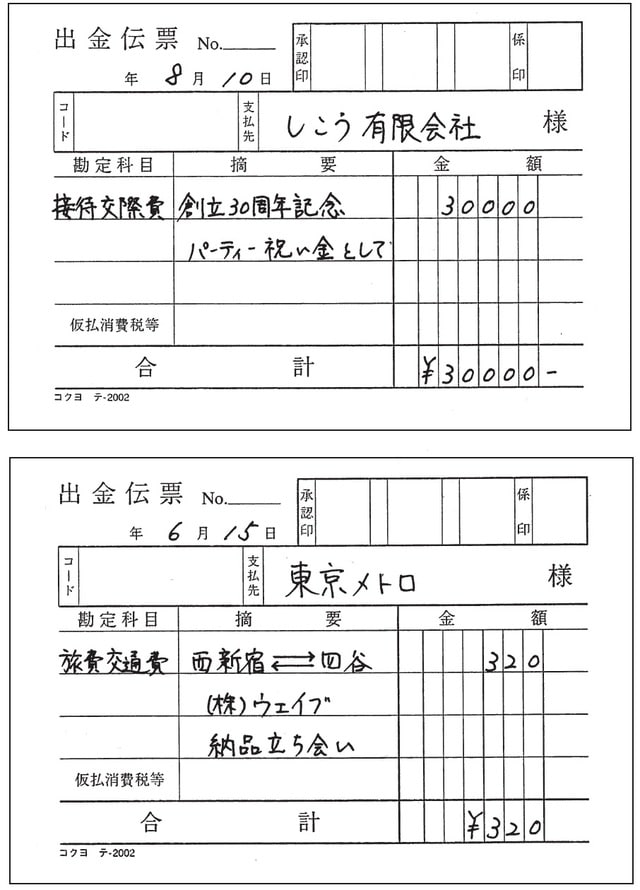 出金伝票 No.
承認印 係印
年 8 月 10 日
コード 支払先 しこう有限会社 様
勘定科目 摘要 金額
接待交際費 創立30周年記念 30000
パーティー祝い金として
仮払消費税等
合計 ¥30000-
コクヨ テ-2002
出金伝票 No.
承認印 係印
年 6 月 15 日
コード 支払先 東京メトロ 様
勘定科目 摘要 金額
旅費交通費 西新宿⇄四谷 320
(株)ウェイブ
納品立ち会い
仮払消費税等
合計 ¥320
コクヨ テ-2002